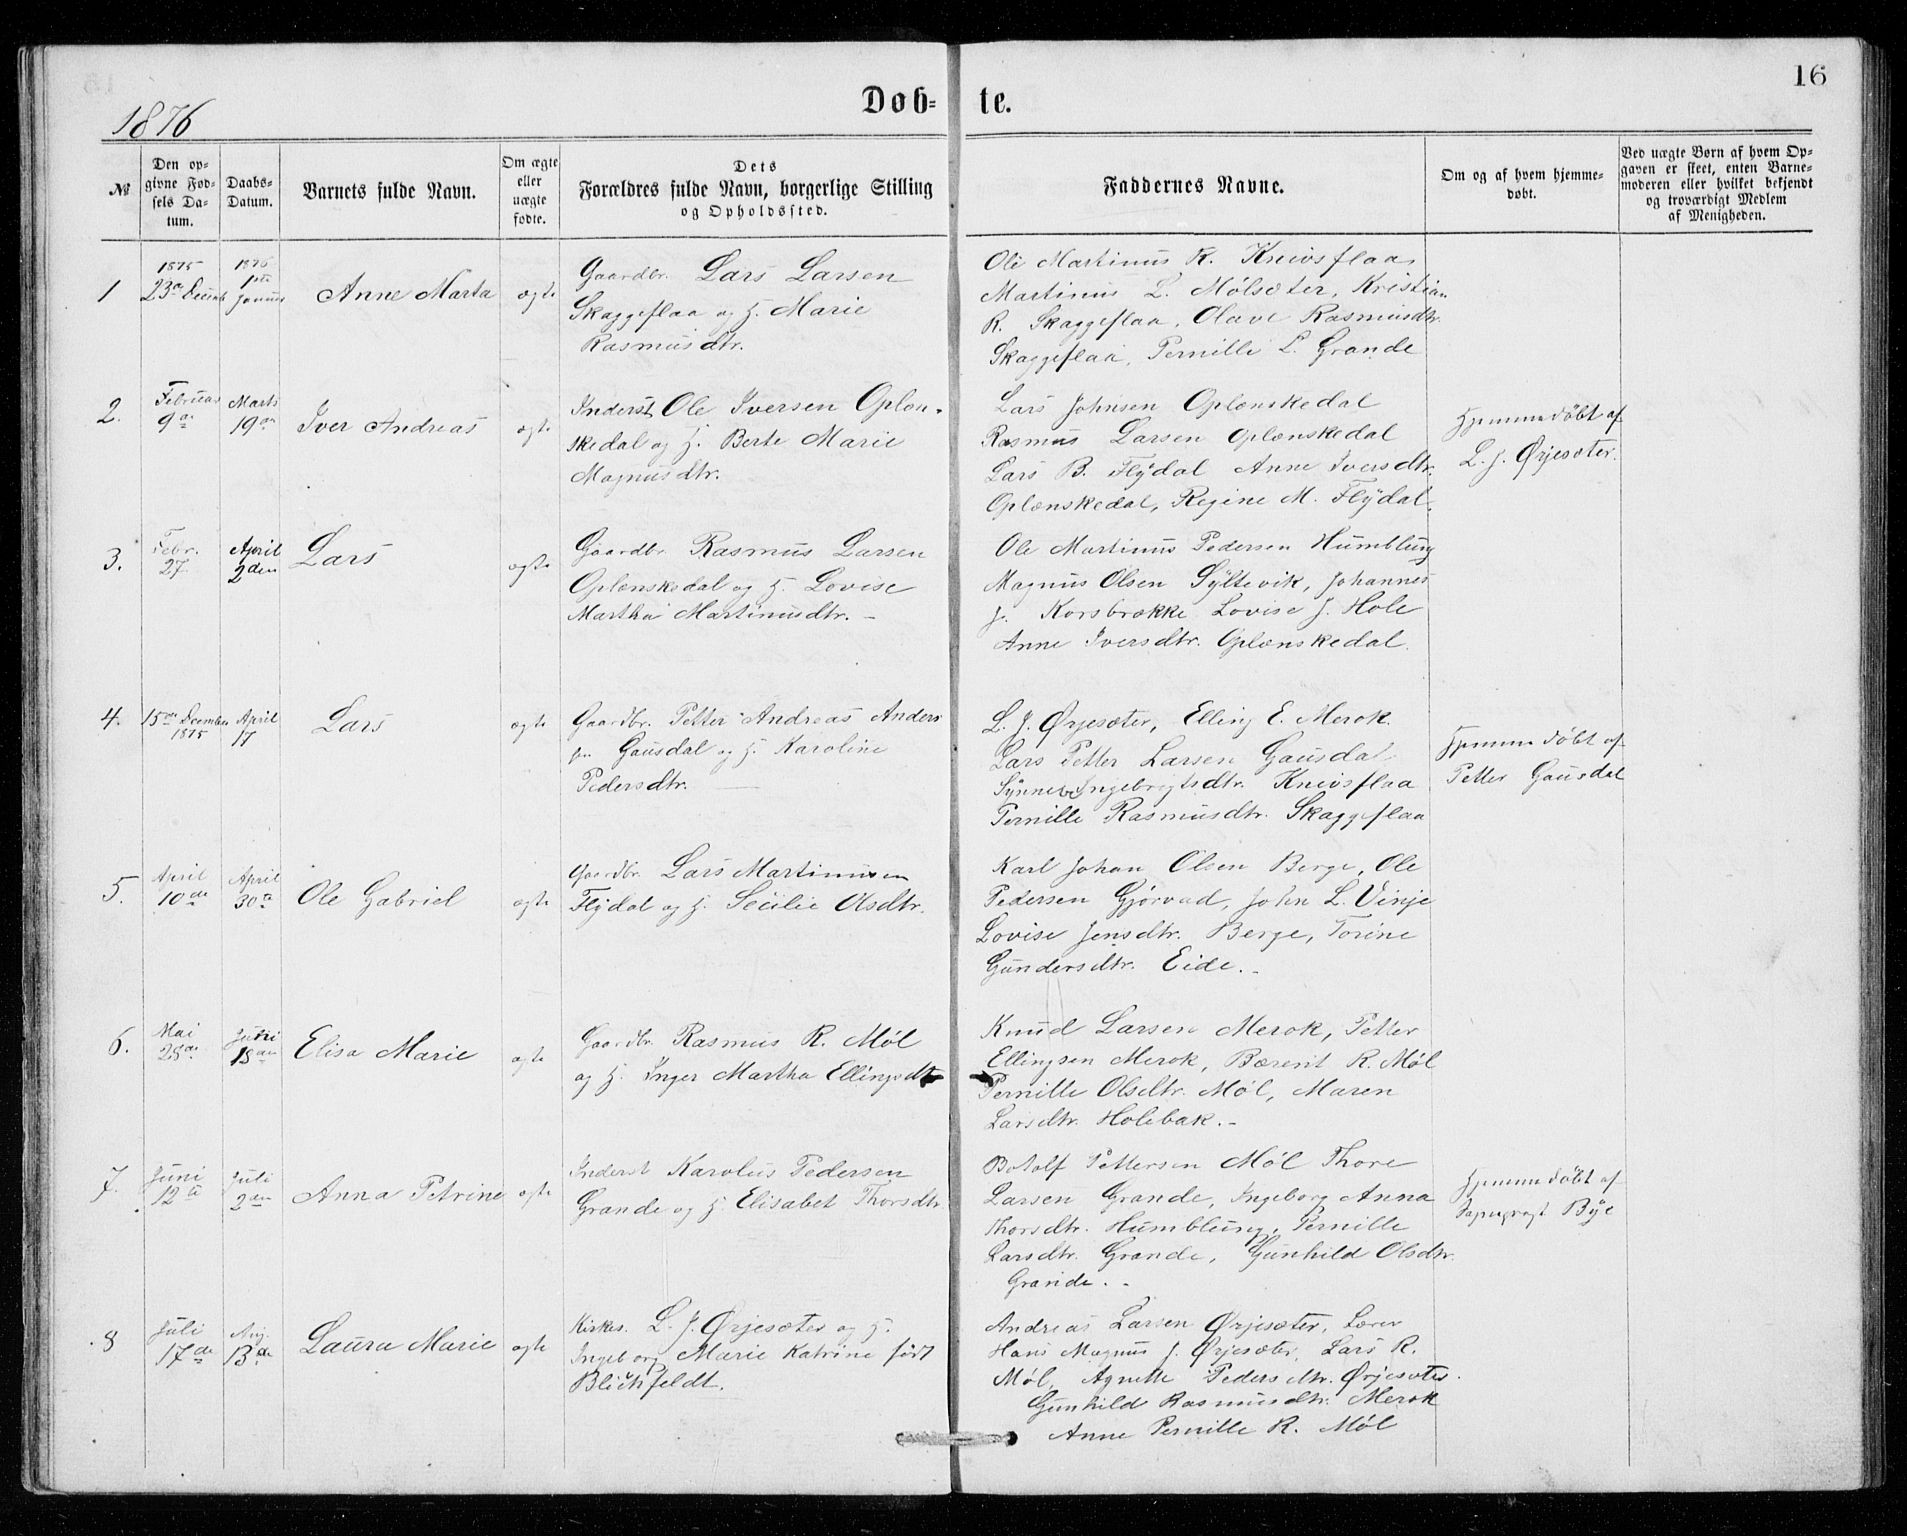 16
1876
Døb= te.
№
Den op=
givne Fød=
sels Da=
tum.
Daabs=
Datum.
Barnets fulde Navn.
Om ægte
eller
uægte
fødte.
Dets
Forældres fulde Navn, borgerlige Stilling
og Opholdssted.
Faddernes Navne.
Om og af hvem hjemme=
døbt.
Ved uægte Børn af hvem Op=
gaven er skeet, enten Barne=
moderen eller hvilket bekjendt
og troværdigt Medlem
af Menigheden.
1
1875
23de Decemb
1876
1ste
Januar
Anne Marta
ægte
Gaardbr. Lars Larsen
Skaggeflaa og H. Marie
Rasmusdtr.
Ole Martinus R. Knivsflaa
Martinus L. Mølsæter, Kristian
R. Skaggeflaa, Olave Rasmusdtr.
Skaggeflaa, Pernille L. Grande
2.
Februar
9de
Marts
19de
Iver Andreas
ægte
Inderst Ole Iversen Oplæn-
skedal og H. Berte Marie
Magnusdtr.
Lars Johnsen Oplænskedal
Rasmus Larsen Oplænskedal
Lars B. Flÿdal Anne Iversdtr.
Oplænskedal, Regine M. Flÿdal.
Hjemmedöbt af
L. J. Ørjesæter.
3.
Febr.
27
April
2den
Lars
ægte
Gaardbr. Rasmus Larsen
Oplænskedal og H. Lovise
Martha Martinusdtr. -
Ole Martinus Pedersen Humblung
Magnus Olsen Sÿltevik, Johannes
J. Korsbrække Lovise J. Hole
Anne Iversdtr. Oplænskedal.
4.
15de December
1875
April
17
Lars
ægte
Gaardbr. Petter Andreas Anders
sn. Gausdal og H. Karoline
Pedersdtr. -
L. J. Ørjesæter, Elling E. Merok.
Lars Petter Larsen Gausdal
Sÿnneve Ingebrigtsdtr. Knivsflaa
Pernille Rasmusdtr. Skaggeflaa
Hjemmedöbt af
Petter Gausdal
5.
April
10de
April
30te
Ole Gabriel
ægte
Gaardbr. Lars Martinussen
Flÿdal og H. Secilie Olsdtr.
Karl Johan Olsen Berge, Ole
Pedersen Gjørvad, John L. Vinje
Lovise Jensdtr. Berge, Torine
Gundersdtr. Eide. -
6.
Mai
28de
Juni
18de
Elisa Marie
ægte
Gaardbr. Rasmus R. Møl
og H. Inger Martha Ellingsdtr
Knud Larsen Merok, Petter
Ellingsen Merok, Bærent R. Møl
Pernille Olsdtr. Møl, Maren
Larsdtr. Holebak. -
7.
Juni
12te
Juli
2den
Anna Petrine
ægte
Inderst Karolus Pedersen
Grande og H. Elisabet Thorsdtr
Botolf Pettersen Møl Thore
Larsen Grande, Ingeborg Anna
Thorsdtr. Humblung, Pernille
Larsdtr. Grande, Gunhild Olsdtr.
Grande. -
Hjemmedöbt af
Bÿe
8
Juli
17de
Aug.
13de
Laura Marie
ægte
Kirkes. L. J. Ørjesæter og H.
Ingeborg Marie Katrine født
Blichfeldt.
Andreas Larsen Ørjesæter, Lærer
Hans Magnus J. Ørjesæter, Lars R.
Møl, Agnette Pedersdtr. Ørjesæter.
Gunhild Rasmusdtr. Merok
Anne Pernille R. Møl